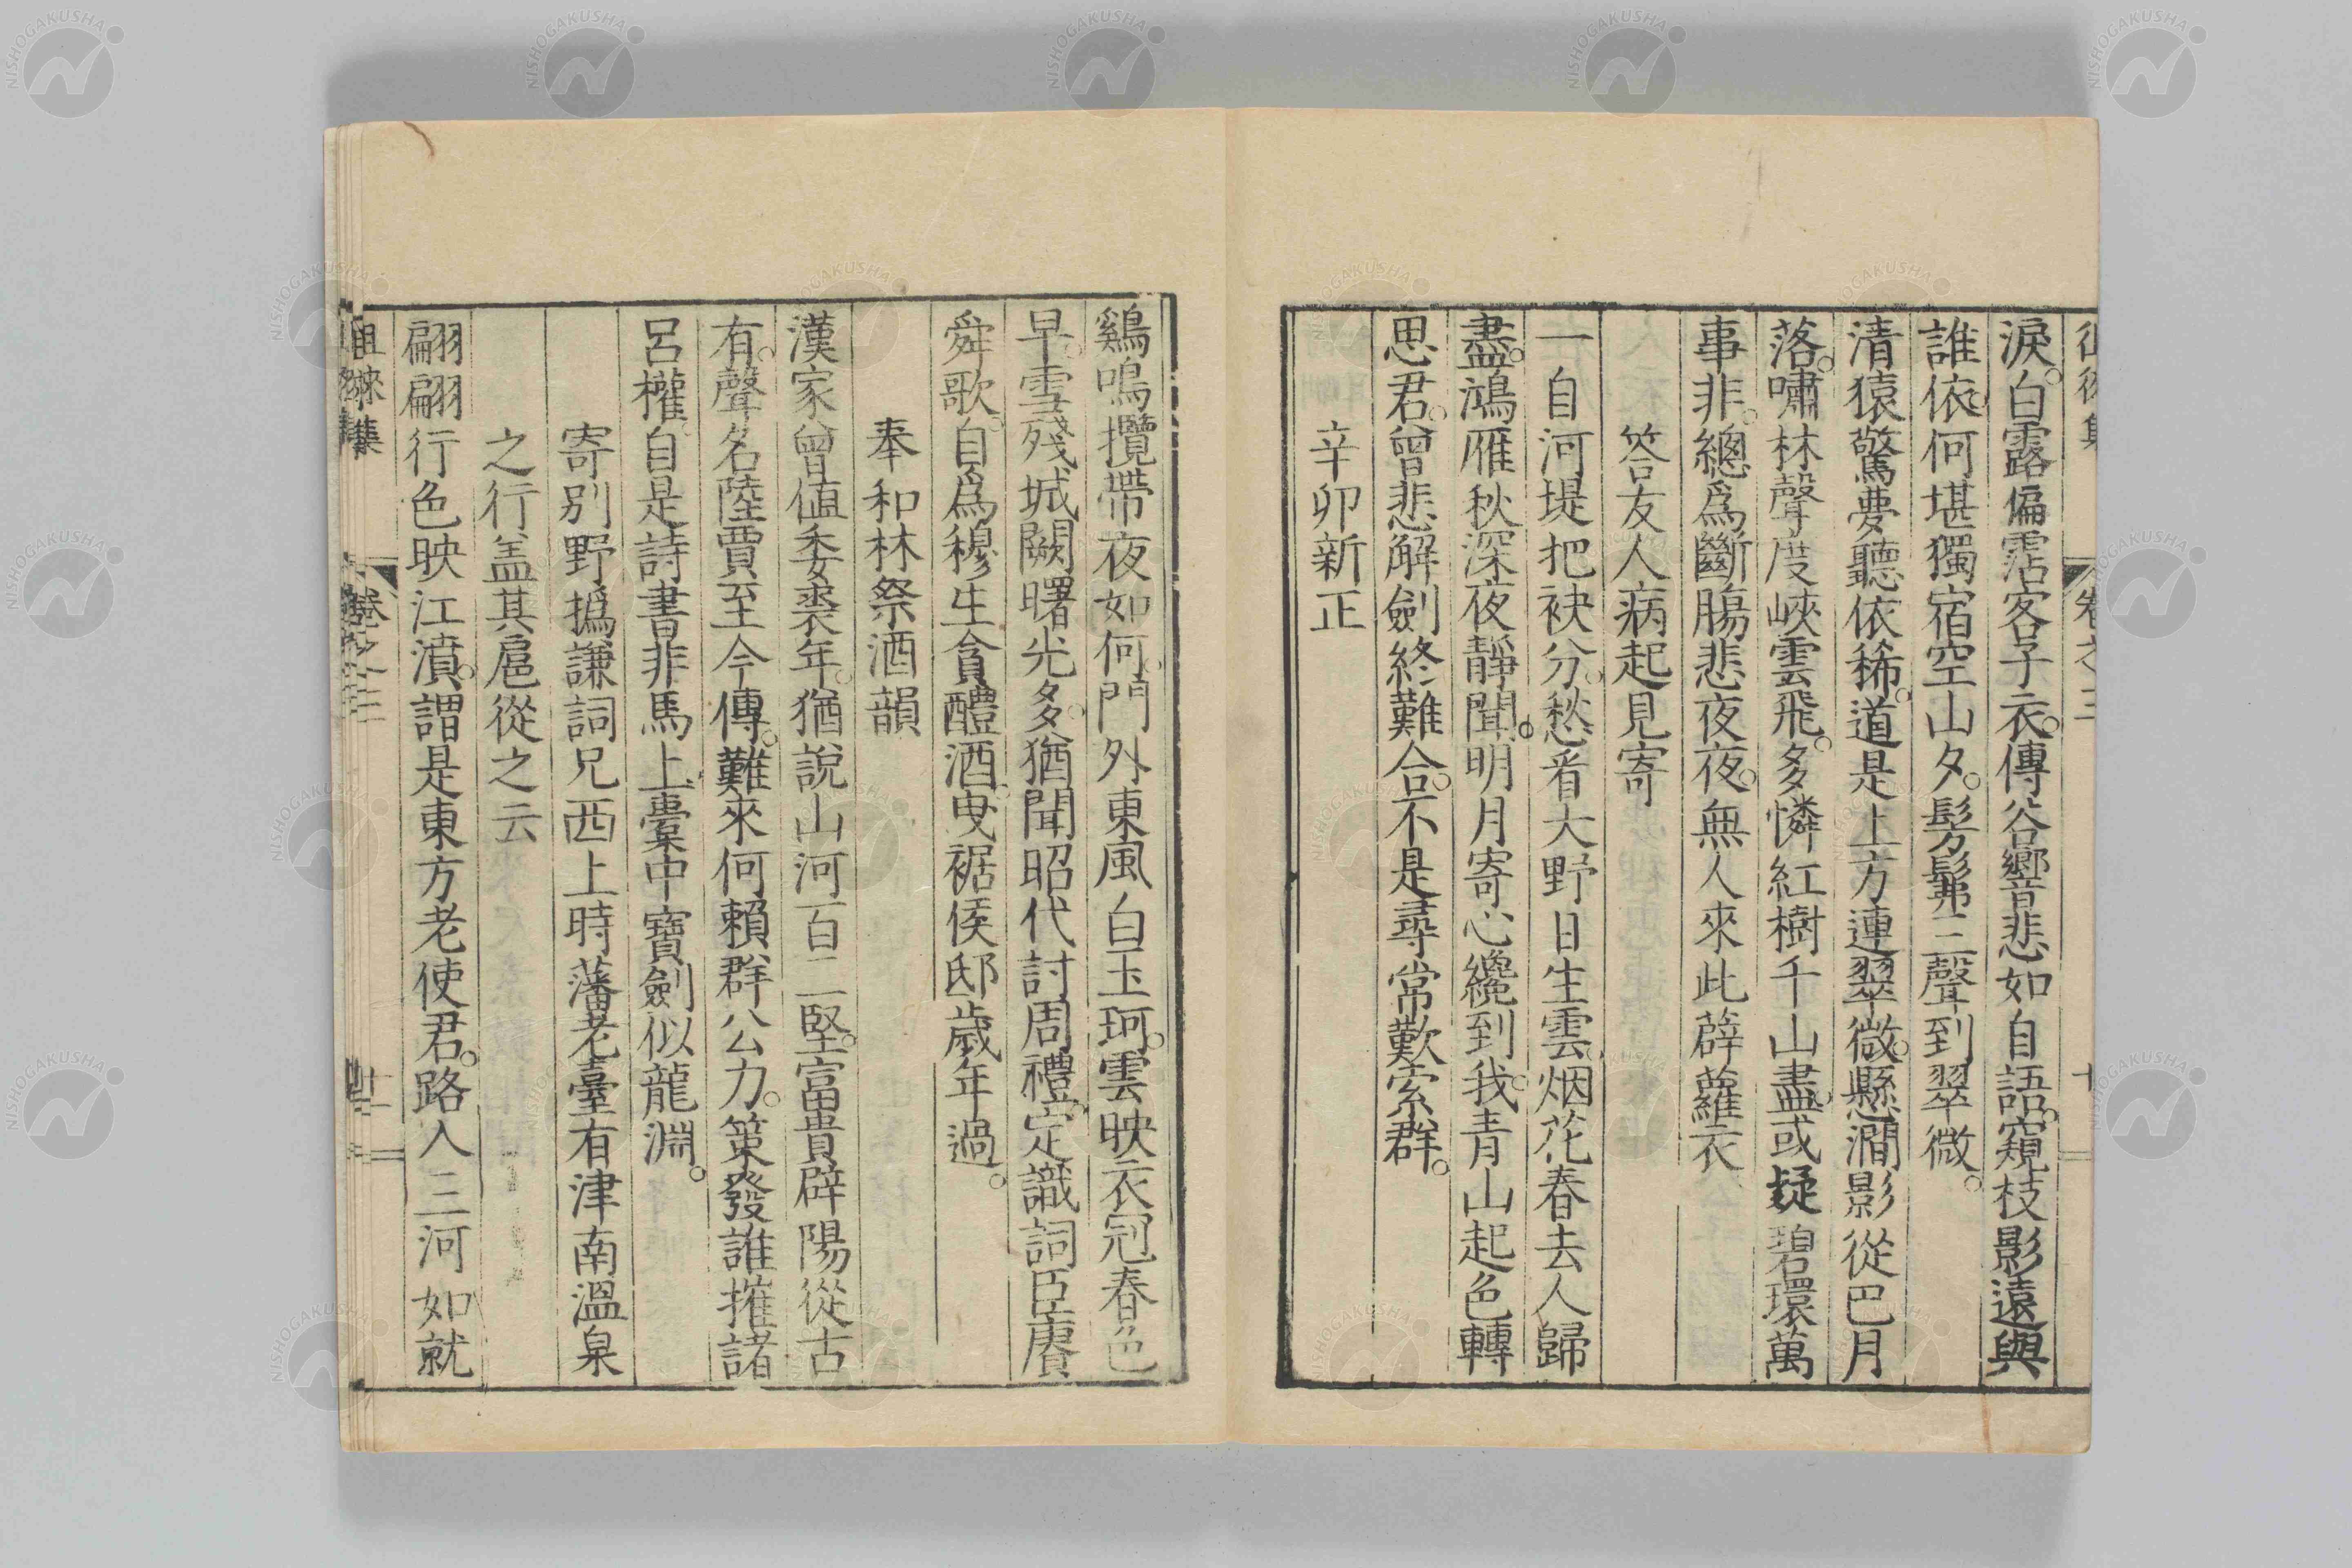 淚。白露偏霑客子衣。傳谷響悲如自語。窺枝影遠與
誰依。何堪獨宿空山夕。髣髴三聲到翠微。
清猿驚夢聽依稀。道是上方連翠微。懸澗影從巴月
落。嘯林聲度峽雲飛。多憐紅樹千山盡。或疑碧環萬
事非。總爲斷腸悲夜夜。無人來此薜蘿衣
答友人病起見寄
一自河堤把袂分。愁看大野日生雲。烟花春去人歸
盡。鴻雁秋深夜靜聞。明月寄心纔到我。青山起色轉
思君。曾悲解劍終難合。不是尋常歎索群。
辛卯新正
鷄鳴攬帶夜如何。門外東風白玉珂。雲映衣冠春色
早。雪殘城闕曙光多。猶聞昭代討周禮。定識詞臣賡
舜歌。自爲穆生貪醴酒。曳裾侯邸歲年過。
奉和林祭酒韻
漢家曾値委裘年。猶說山河百二堅。富貴辟陽從古
有。聲名陸賈至今傳。難來何賴群公力。策發誰摧諸
呂權。自是詩書非馬上。橐中寶劍似龍淵。
寄別野撝謙詞兄西上時藩老臺有津南溫泉
之行盖其扈從之云
翩翩行色映江濆。謂是東方老使君。路入三河如就
徂徠集 卷之三